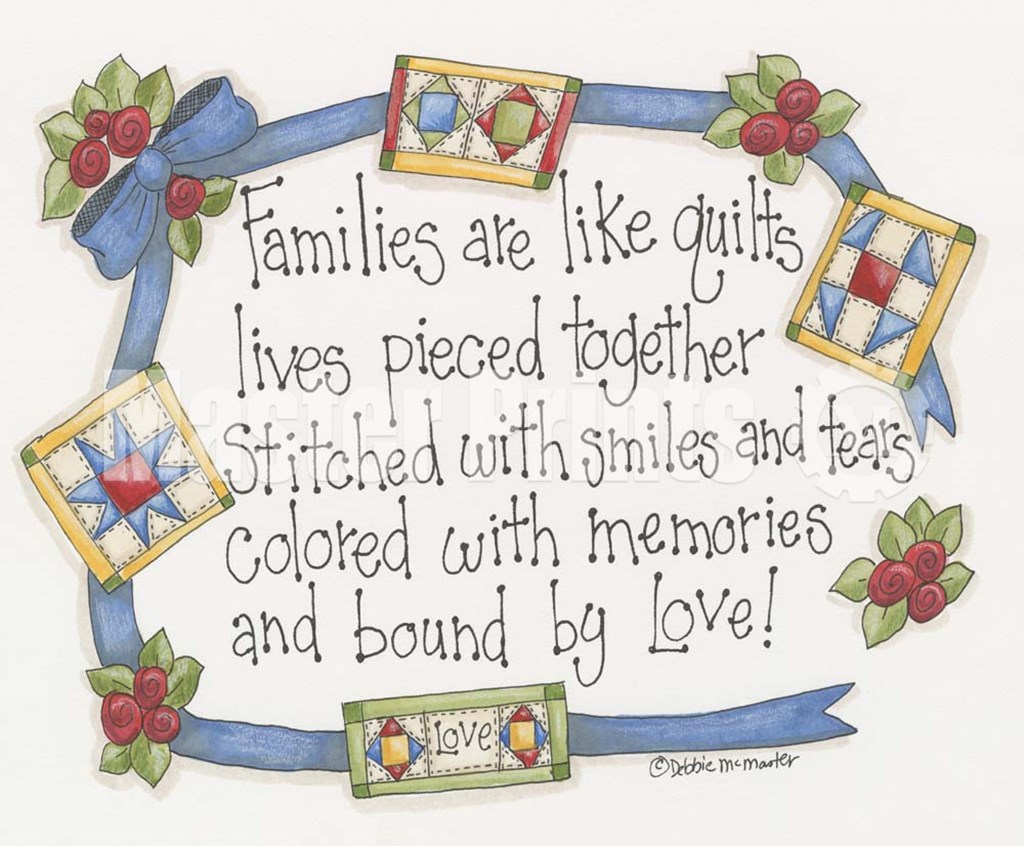 Families are like quilts
lives pieced together
Stitched with smiles and tears
colored with memories
and bound by Love!
Love
©Debbie McMaster
Master Prints